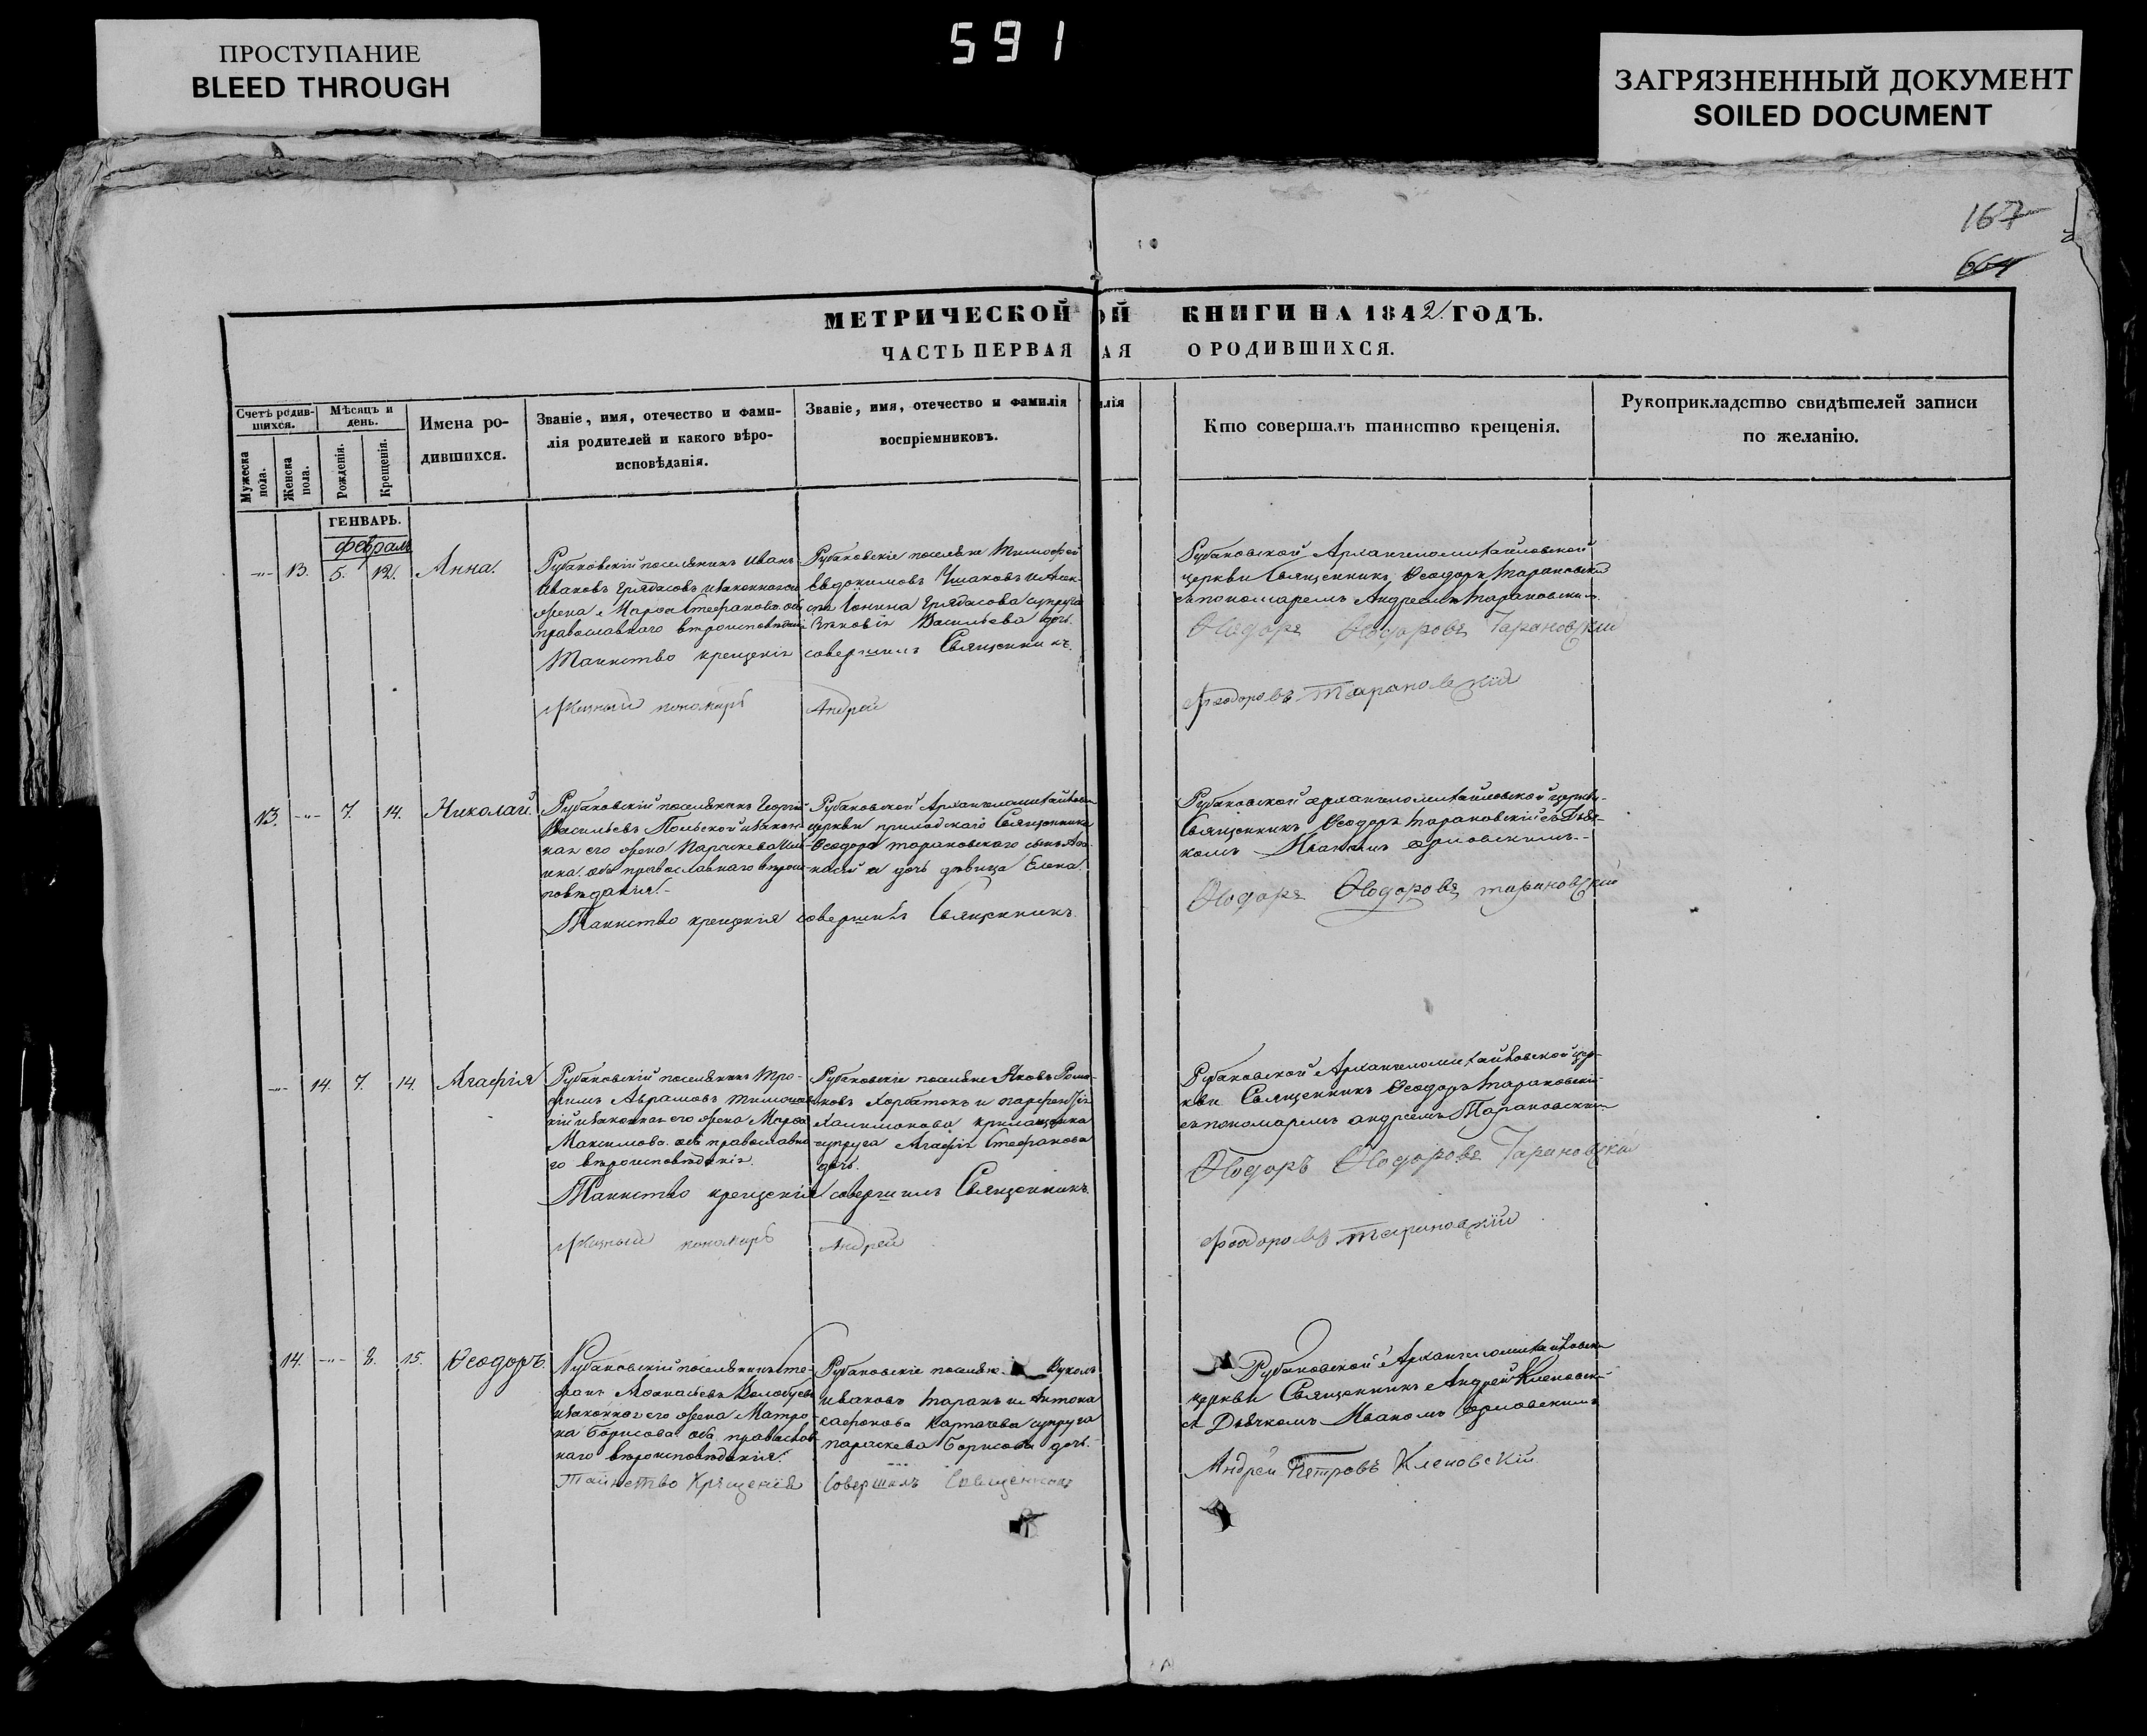 ПРОСТУПАНИЕ
BLEED THROUGH
591
ЗАГРЯЗНЕННЫЙ ДОКУМЕНТ
SOILED DOCUMENT
167
664
МЕТРИЧЕСКОЙ ОЙ КНИГИ НА 1842 ГОДЪ.
ЧАСТЬ ПЕРВАЯ АЯ О РОДИВШИХСЯ.
Счетъ родив-
шихся.
Мужеска
пола.
Женска
пола.
Мѣсяцъ и
день.
Рожденія.
Крещенія.
Имена ро-
дившихся.
Званіе, имя, отечество и фами-
лія родителей и какого вѣро-
исповѣданія.
Званіе, имя, отечество и фамилія
воспріемниковъ.
илія
Кто совершалъ таинство крещенія.
Рукоприкладство свидѣтелей записи
по желанію.
ГЕНВАРЬ.
Февраль
-"- 13. 5. 12. Анна.
Рубановскій поселянинъ Иванъ
Ивановъ Грядасовъ и законная его
жена Марѳа Стефанова оба
православнаго вѣроисповѣданія
Таинство крещенія
Рубановскіе поселяне Тимофей
Евдокимовъ Ушаковъ и
Іонина Грядасова супруга
Васильева дочь.
совершилъ Священникъ.
пономарь Андрей
Рубановской Архангеломихайловской
церкви Священникъ Ѳеодоръ Тарановскій
съ пономаремъ Андреемъ Тарановскимъ.
Ѳеодоръ Ѳеодоровъ Тарановскій
Феодоровъ Тарановскій
13. -"- 7. 14. Николай.
Рубановскій поселянинъ Георгій
Васильевъ Польской и закон-
ная его жена Параскева
оба православнаго вѣроис-
повѣданія.
Таинство крещенія
Рубановской Архангеломихайловской
церкви приходскаго Священника
Ѳеодора Тарановскаго сынъ Аѳа-
насій и дочь дѣвица Елена.
совершилъ Священникъ.
Рубановской Архангеломихайловской церкви
Священникъ Ѳеодоръ Тарановскій съ Дья-
комъ Иваномъ Орловскимъ.
Ѳеодоръ Ѳеодоровъ Тарановскій
-"- 14. 7. 14. Агафія
Рубановскій поселянинъ Тро-
фимъ Аврамовъ
и законная его жена Марѳа
Максимова оба православна-
го вѣроисповѣданія.
Таинство крещенія
Рубановскіе поселяне Яковъ Рома-
новъ Горбатокъ и
супруга Агафія Стефанова
дочь.
совершилъ Священникъ.
пономарь Андрей
Рубановской Архангеломихайловской цер-
кви Священникъ Ѳеодоръ Тарановскій
съ пономаремъ Андреемъ Тарановскимъ
Ѳеодоръ Ѳеодоровъ Тарановскій
Феодоровъ Тарановскій
14. -"- 8. 15. Ѳеодоръ.
Рубановскій поселянинъ Сте-
фанъ Аѳанасьевъ Волобуевъ
и законная его жена Матро-
на Борисова оба православ-
наго вѣроисповѣданія.
Таинство Крещенія
Рубановскіе поселяне Вуколъ
Ивановъ Таранъ и Антона
Сафонова Картачева супруга
Параскева Борисова дочь.
Совершилъ Священникъ
Рубановской Архангеломихайловской
церкви Священникъ Андрей Кленовскій
съ Дьячкомъ Иваномъ Орловскимъ
Андрей Петровъ Кленовскій